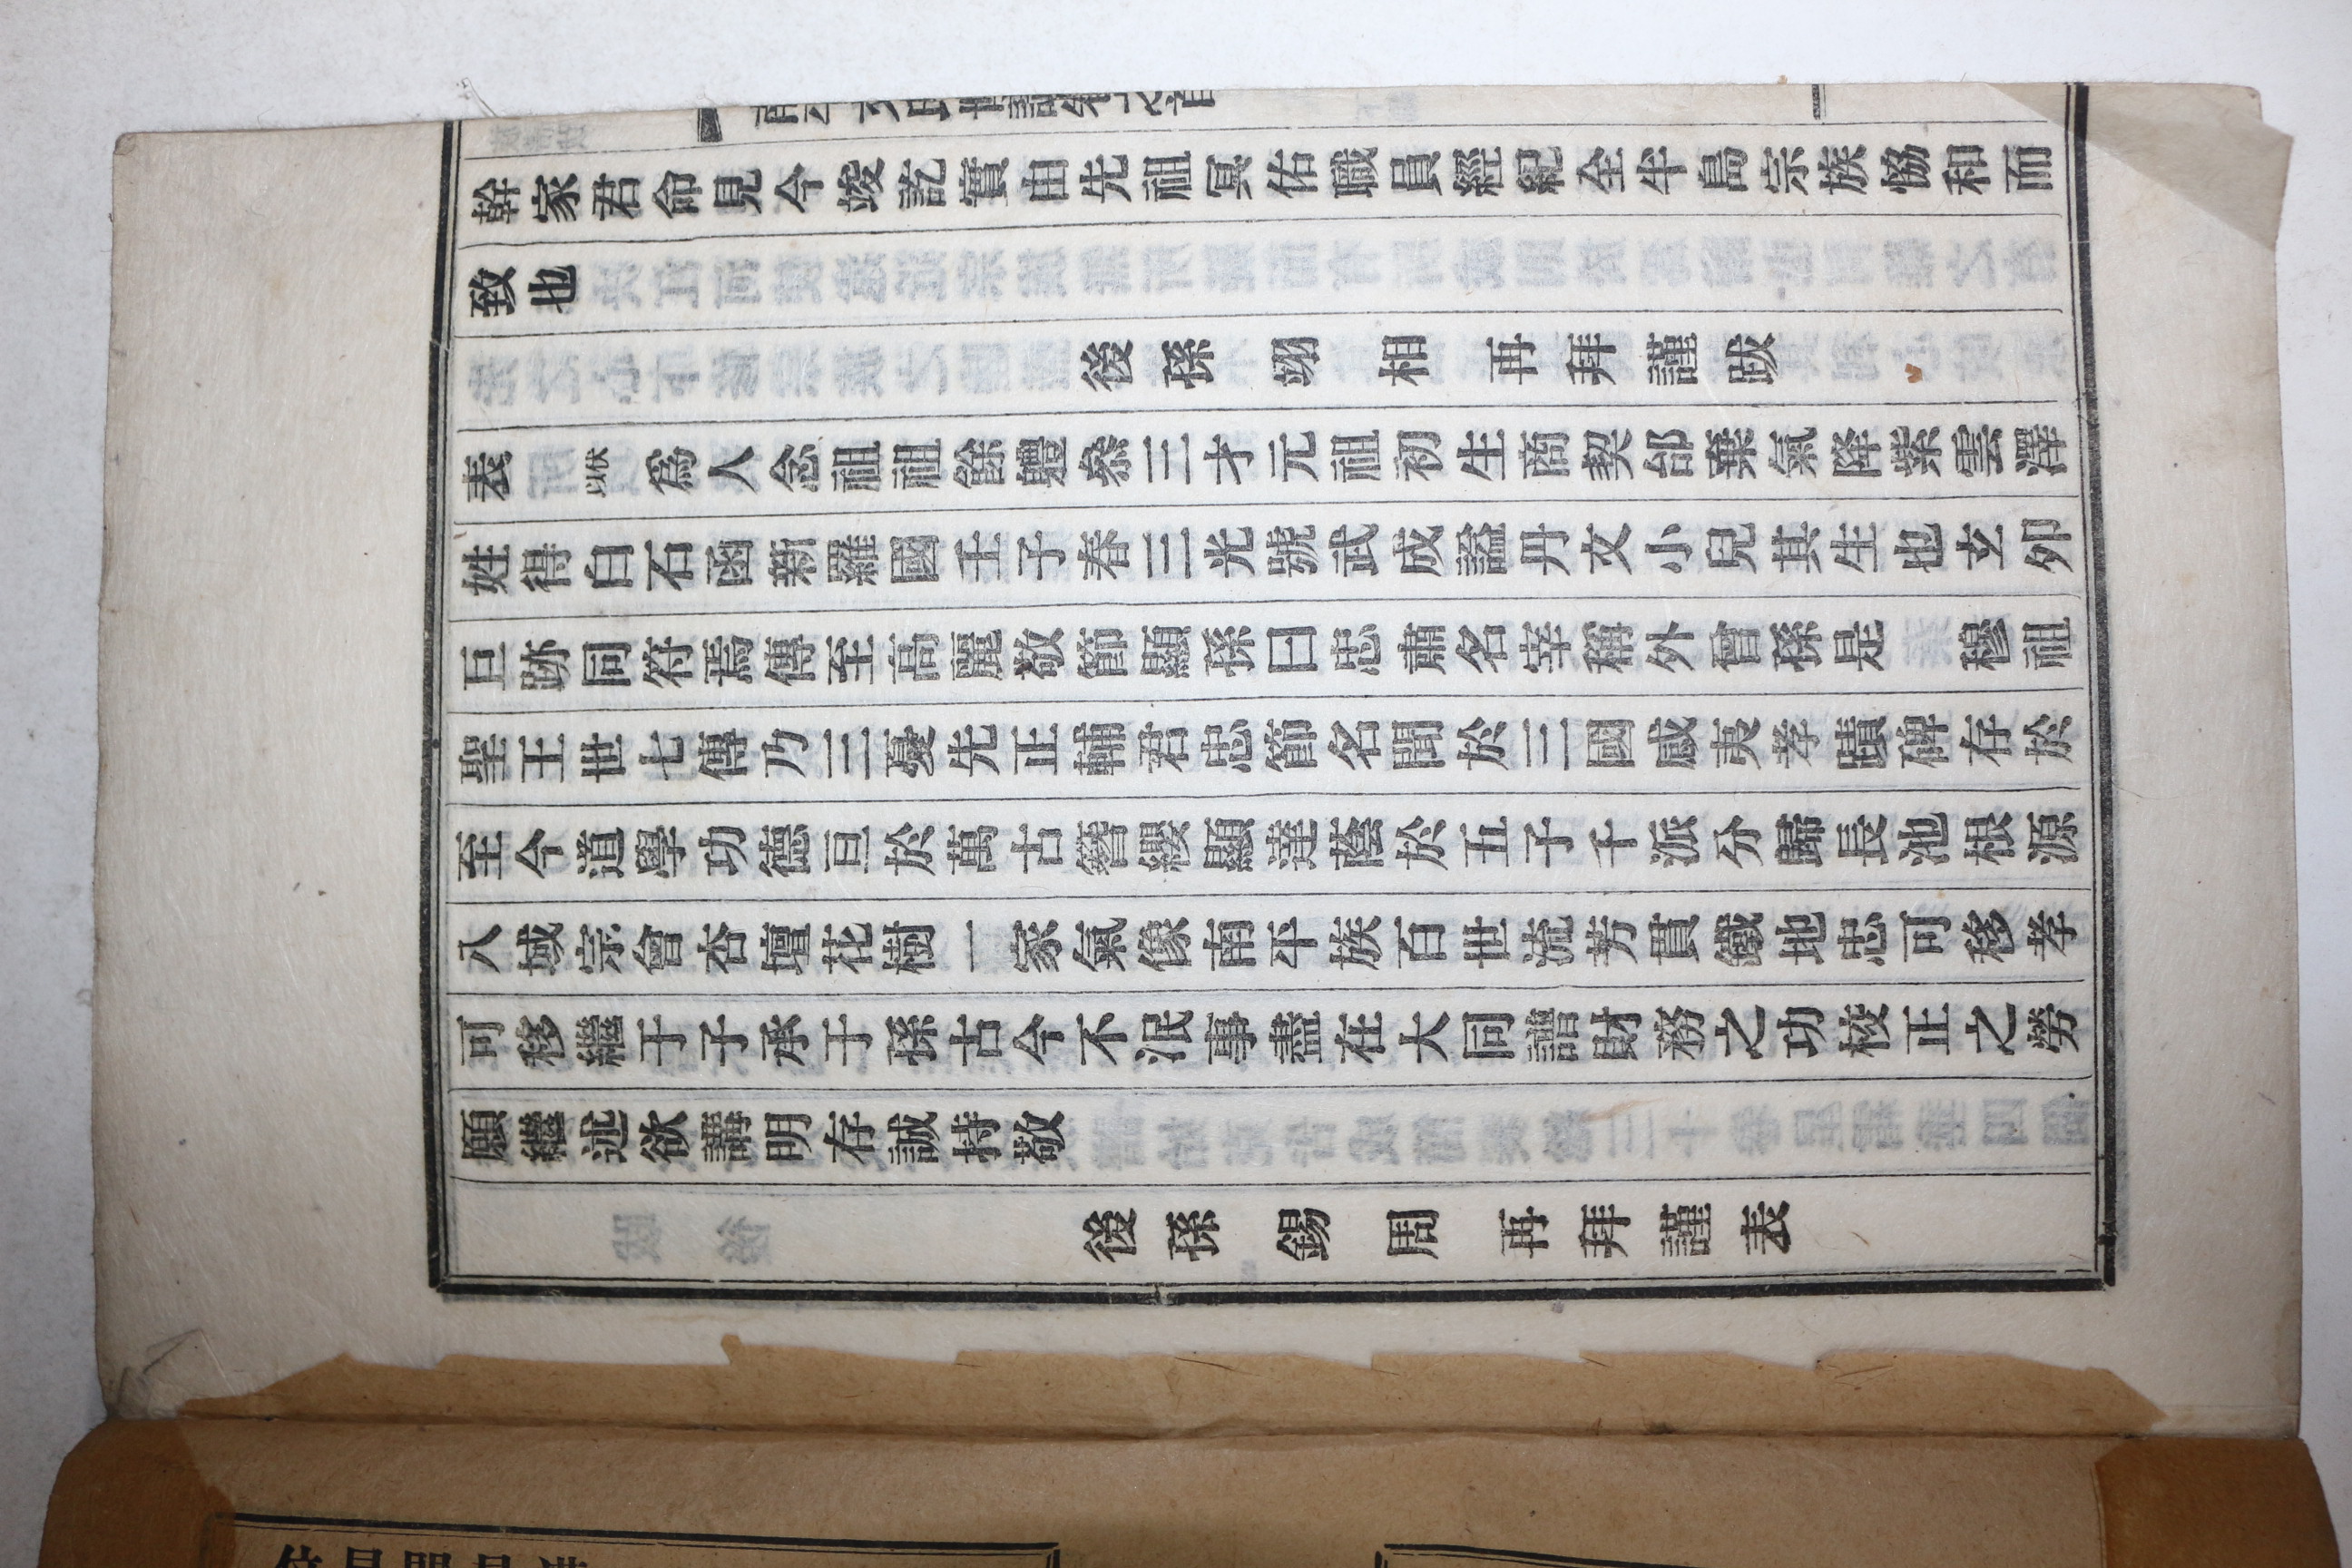 幹家君命見今竣訖實由先祖冥佑職員經紀全半島宗族恊和而
致也
後孫 翊 相 再拜謹跋
表 伏以 爲人念祖祖餘軆叅三才元祖初生商契邰棄氣降紫雲澤
姓得白石函新羅國壬子春三光號武成謚丹文小兒其生也玄夘
巨跡同符焉傳至高麗敬節顯孫曰忠肅名宰稱外曾孫是 穆祖
聖王世七傳乃三憂先正輔君忠節名聞於三國感夷孝蹟碑存於
至今道學功德亘於萬古簪纓顯達蔭於五子千派分歸長池根源
八域宗會杏壇花樹一家氣像南平族百世流芳貫鐵地忠可移孝
可移繼于子承于孫古今不泯事盡在大同譜財務之功校正之勞
願繼述欲講明存誠持敬
後孫 錫 周 再拜謹表